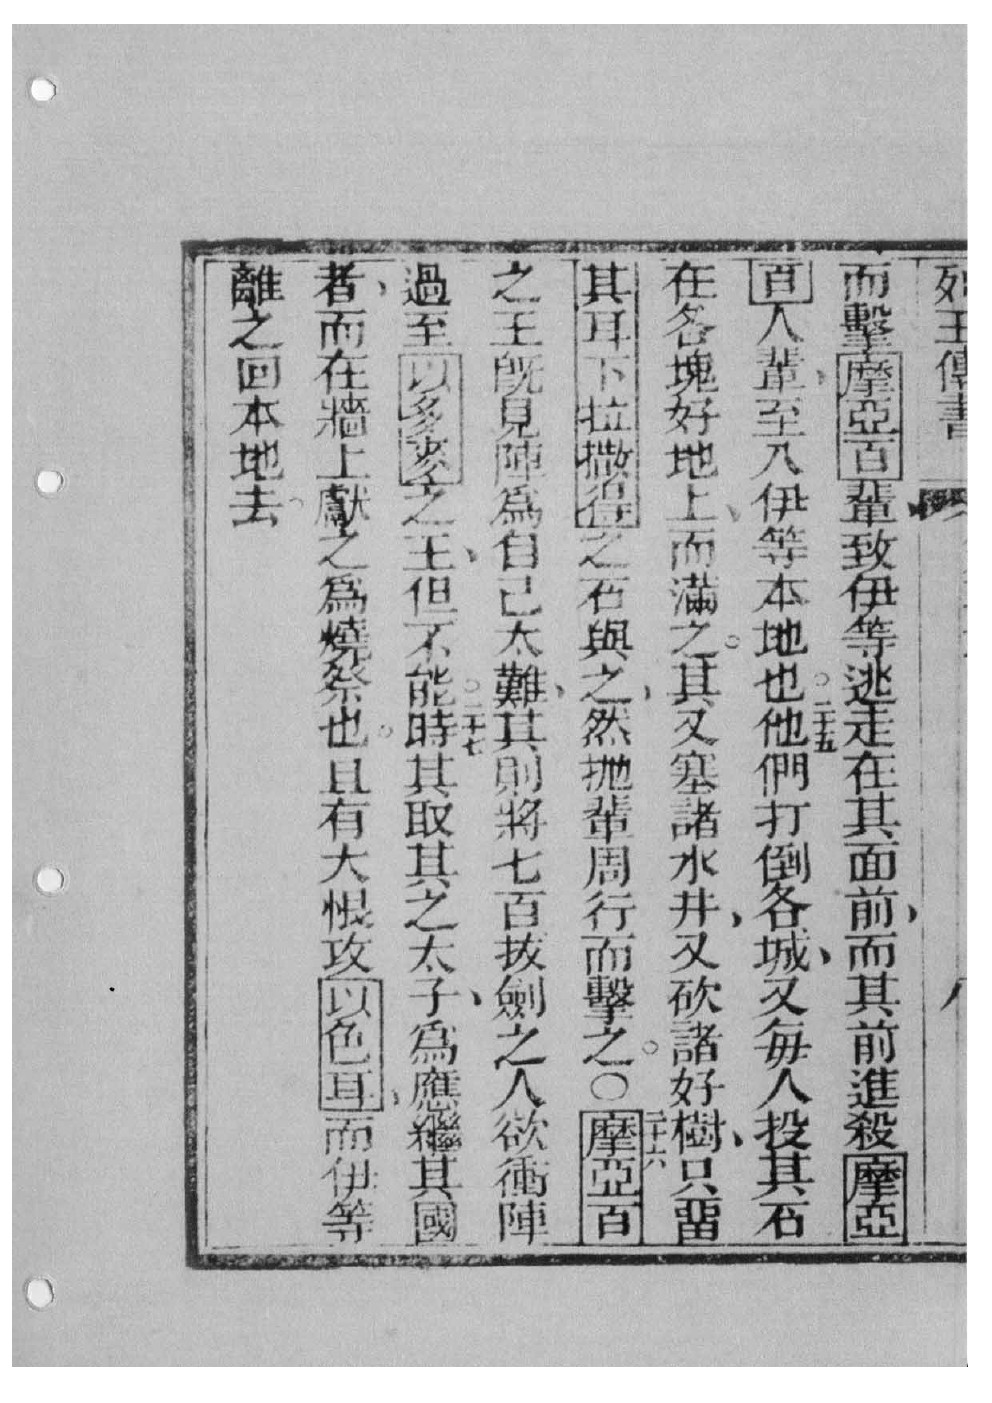 列王傳書
而擊摩亞百輩致伊等逃走在其面前、而其前進殺摩亞
百人輩、至入伊等本地也。二十五他們打倒各城、又每人投其石
在各塊好地上、而滿之。其又塞諸水井、又砍諸好樹、只畱
其耳下拉撒得之石與之、然拋輩周行而擊之。○二十六摩亞百
之王旣見陣爲自己太難、其則將七百拔劍之人欲衝陣
過至以多麥之王、但不能。二十七時其取其之太子、爲應繼其國
者、而在牆上獻之爲燒祭也。且有大恨攻以色耳、而伊等
離之回本地去。